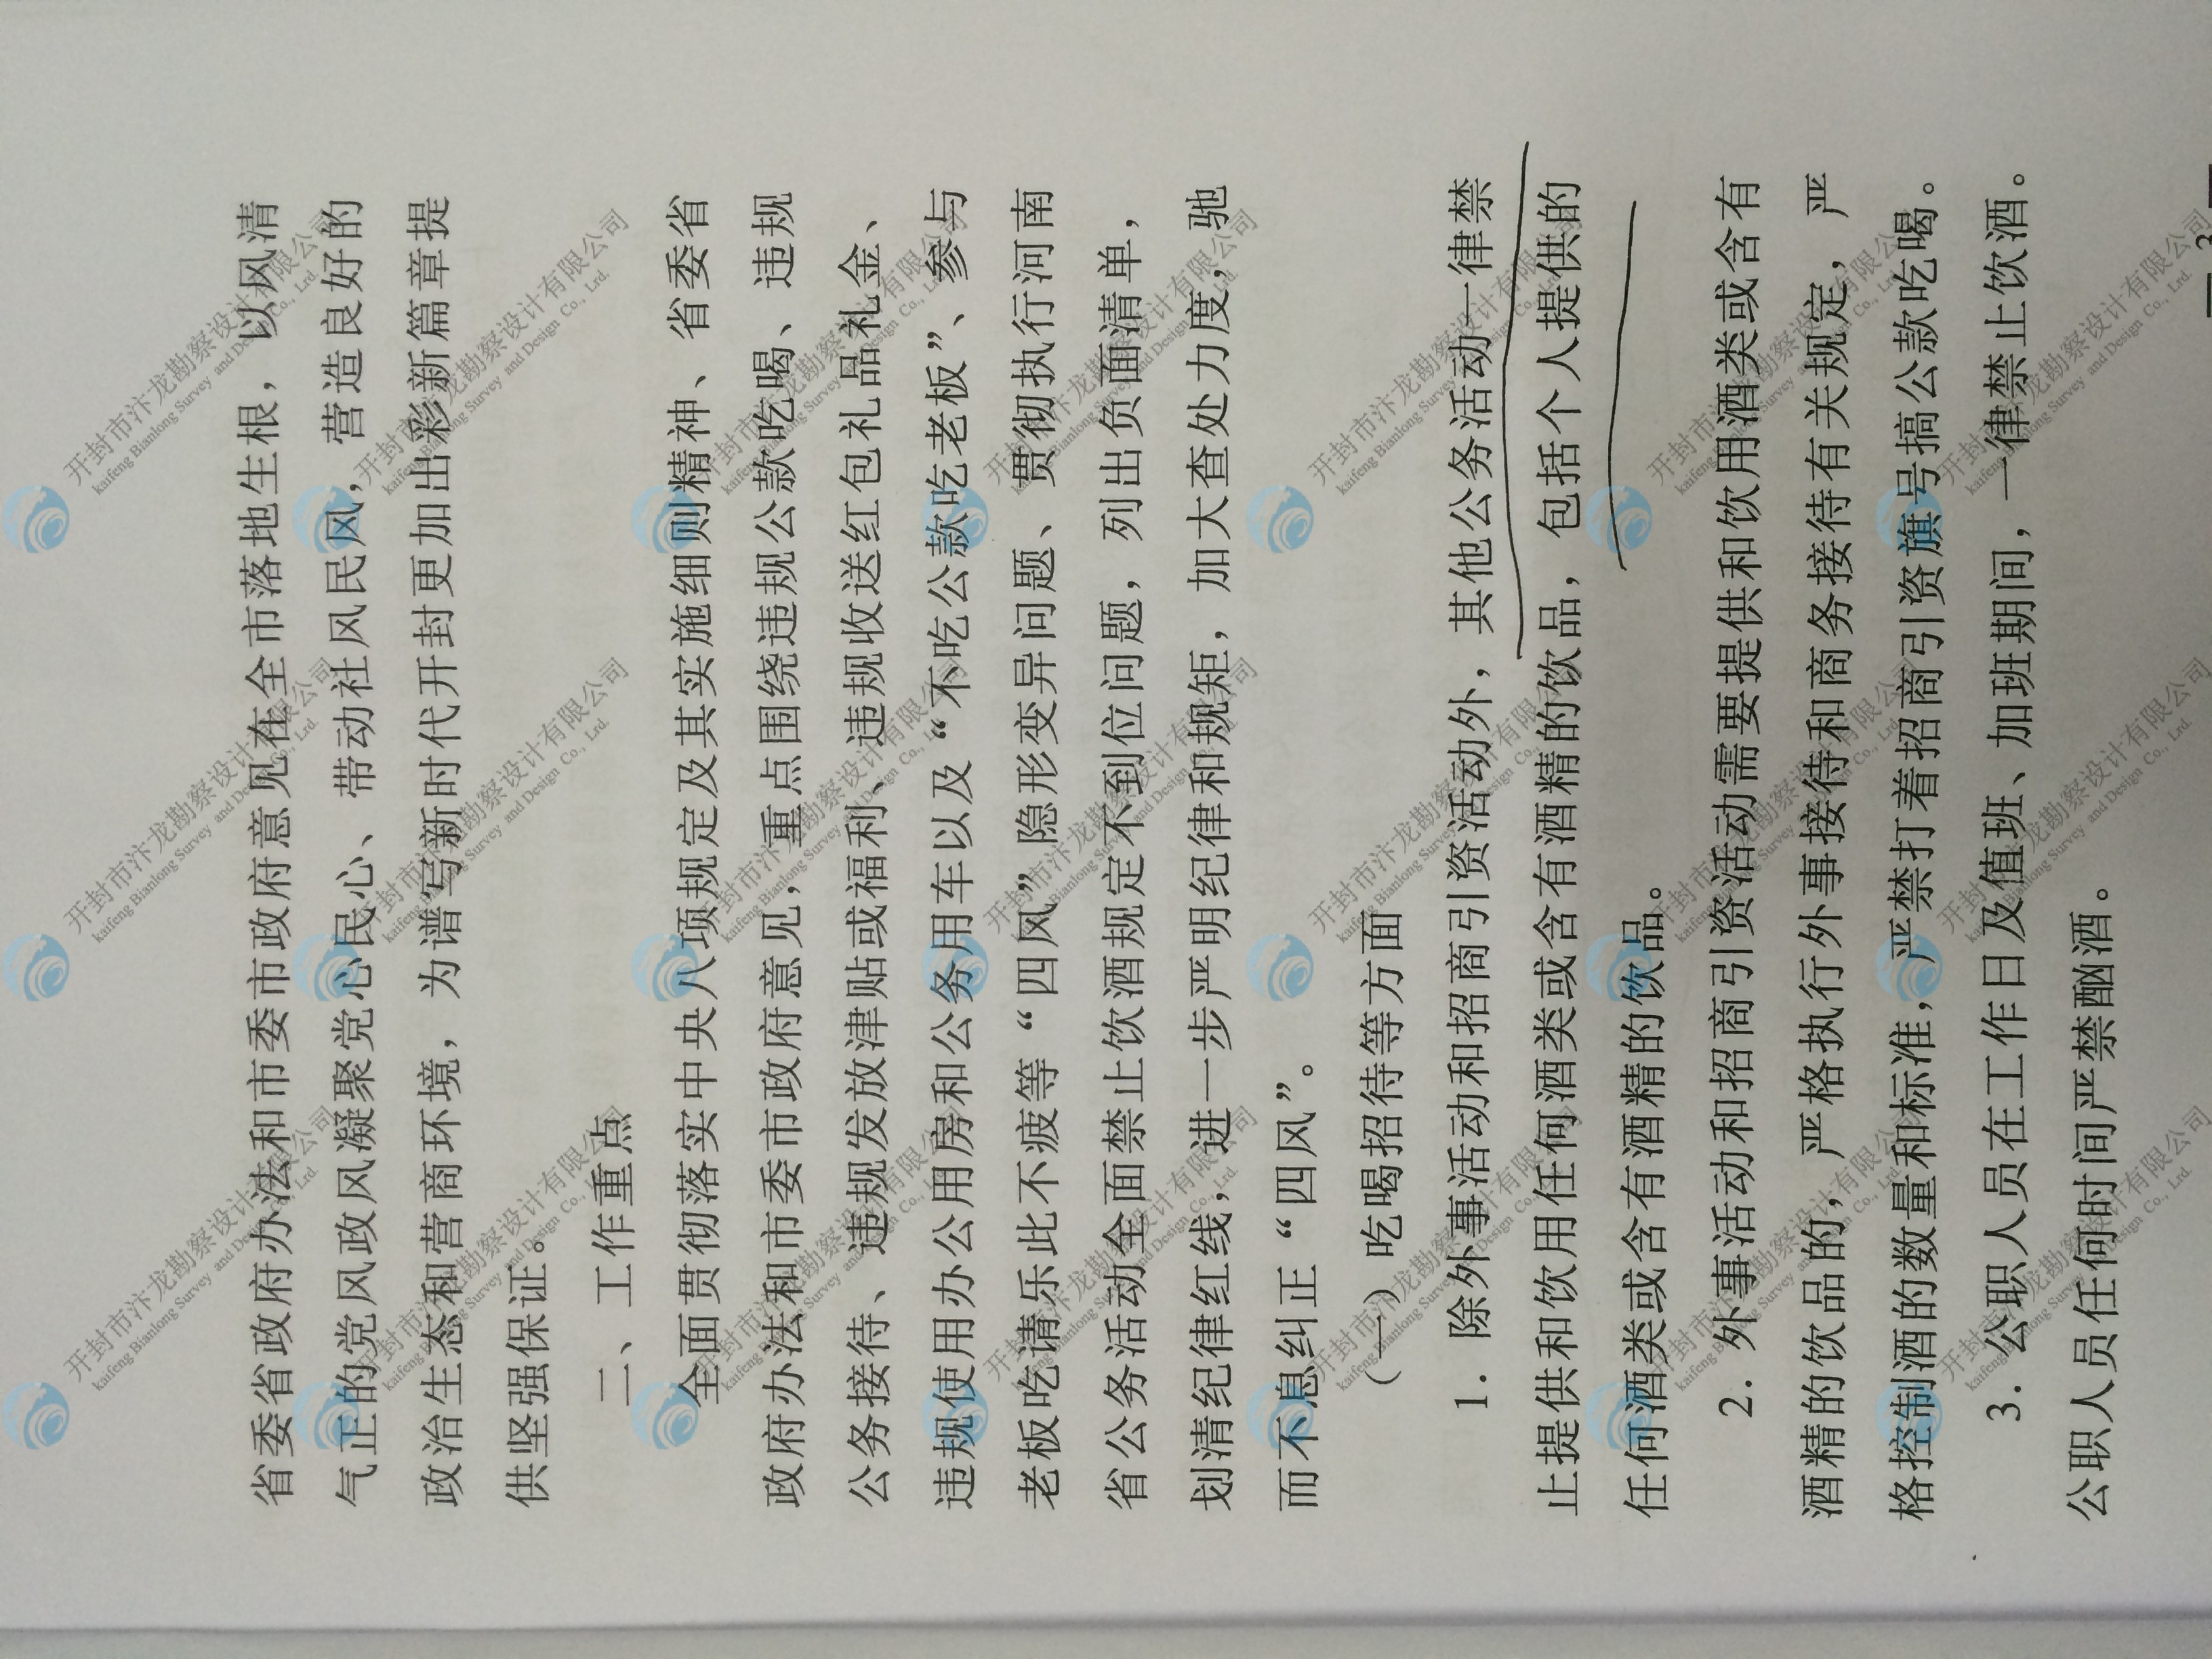 省委省政府办法和市委市政府意见在全市落地生根，以风清
气正的党风政风凝聚党心民心、带动社风民风，营造良好的
政治生态和营商环境，为谱写新时代开封更加出彩新篇章提
供坚强保证。
二、工作重点
全面贯彻落实中央八项规定及其实施细则精神、省委省
政府办法和市委市政府意见，重点围绕违规公款吃喝、违规
公务接待、违规发放津贴或福利、违规收送红包礼品礼金、
违规使用办公用房和公务用车以及“不吃公款吃老板”、参与
老板吃请乐此不疲等“四风”隐形变异问题、贯彻执行河南
省公务活动全面禁止饮酒规定不到位问题，列出负面清单，
划清纪律红线，进一步严明纪律和规矩，加大查处力度，驰
而不息纠正“四风”。
（一）吃喝招待等方面
1. 除外事活动和招商引资活动外，其他公务活动一律禁
止提供和饮用任何酒类或含有酒精的饮品，包括个人提供的
任何酒类或含有酒精的饮品。
2. 外事活动和招商引资活动需要提供和饮用酒类或含有
酒精的饮品的，严格执行外事接待和商务接待有关规定，严
格控制酒的数量和标准，严禁打着招商引资旗号搞公款吃喝。
3. 公职人员在工作日及值班、加班期间，一律禁止饮酒。
公职人员任何时间严禁酗酒。
开封市汴龙勘察设计有限公司
kaifeng Bianlong Survey and Design Co., Lrd.